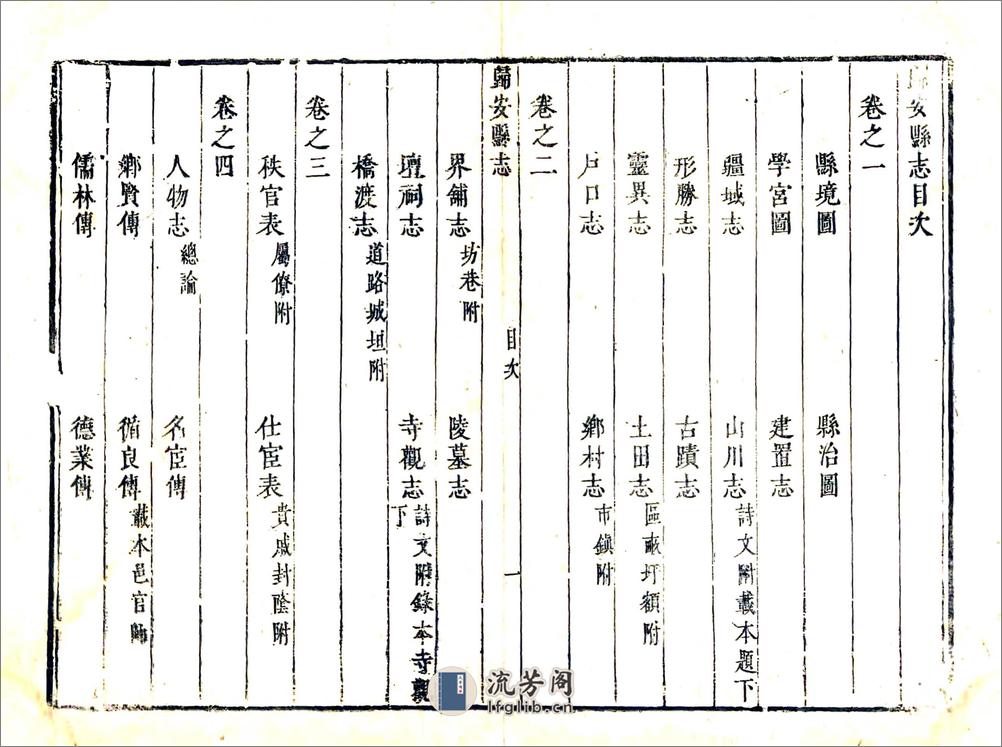 歸安縣志目次
卷之一
縣境圖 縣治圖
學宮圖 建置志
疆域志 山川志 詩文附載本題下
形勝志 古蹟志
靈異志 土田志 區畝圩額附
戶口志 鄉村志 市鎮附
卷之二
歸安縣志 目次 一
界舖志 坊巷附 陵墓志
壇祠志 寺觀志 詩文附錄本寺觀下
橋渡志 道路城垣附
卷之三
秩官表 屬僚附 仕宦表 貴戚封蔭附
卷之四
人物志 總論 名宦傳
鄉賢傳 循良傳 載本邑官師
儒林傳 德業傳
流芳阁
lfglib.cn